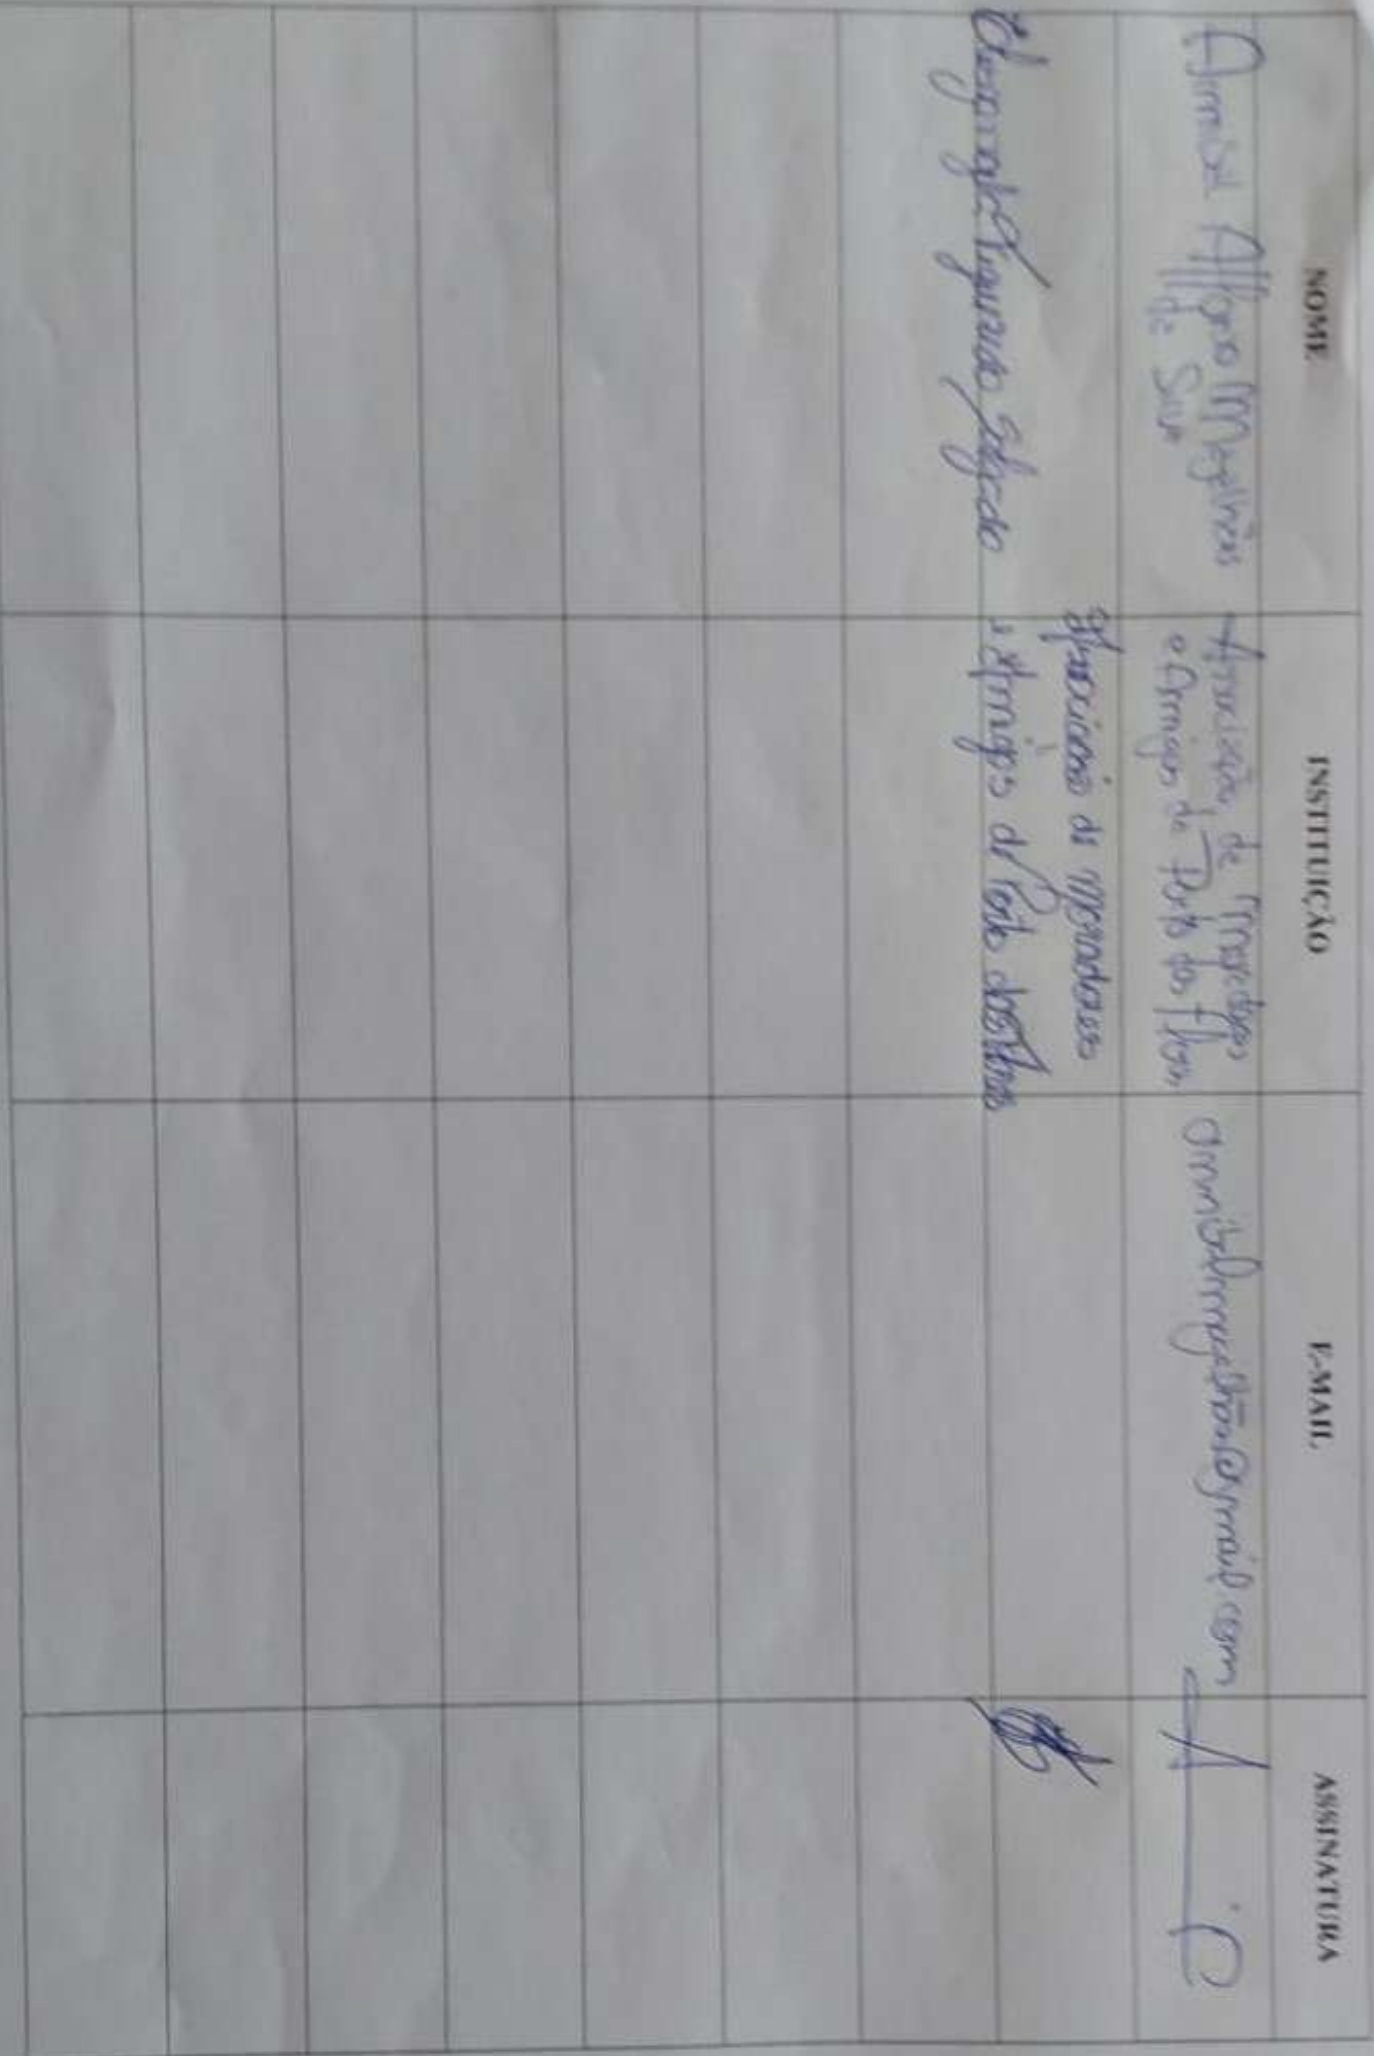 NOME INSTITUIÇÃO E-MAIL ASSINATURA
Annibal Affonso Magalhães
da Silva
Associação de Moradores
e Amigos de Porto das Flores
annibalmagalhaes@gmail.com
Figueiredo Salgado
Associação de Moradores
e Amigos de Porto das Flores